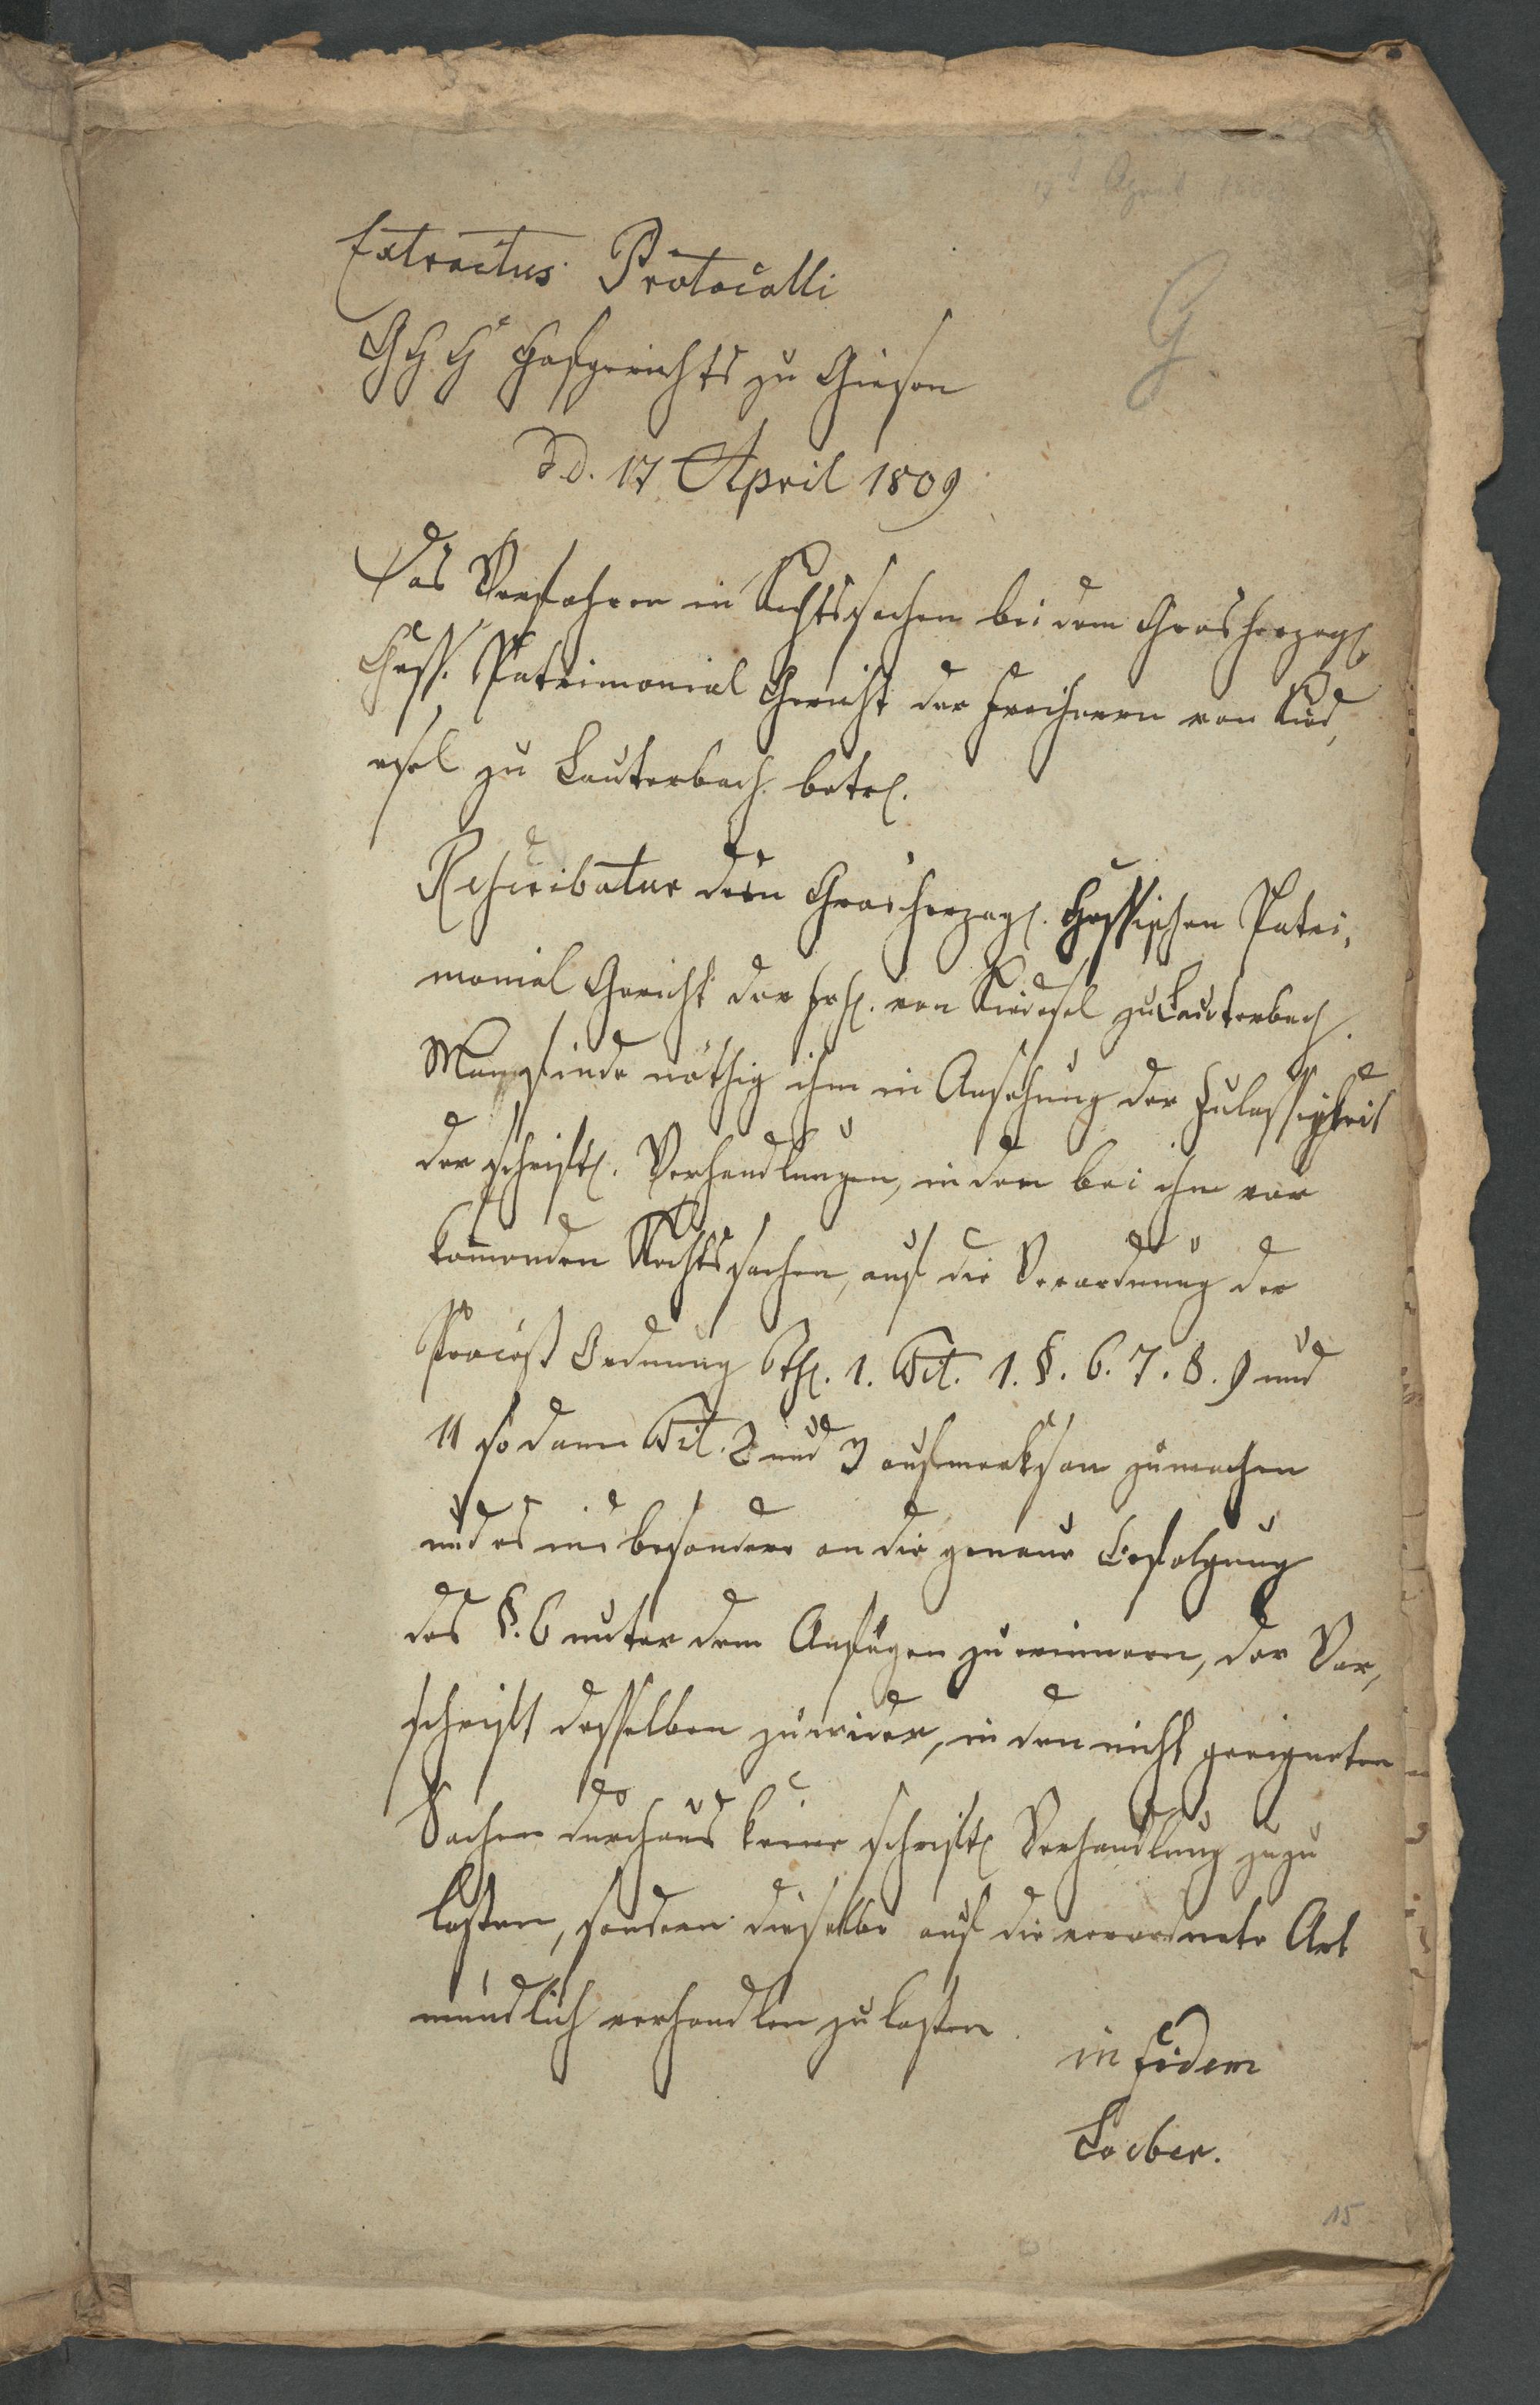 17 April 180
Extractus Protocolli
G
GHH Hofgerichts zu Giesen
d.d. 17 April 1809
Das Verfahren in Rechtssachen bei dem Grosherzogl
Hess. Patrimonial Gericht der Freiherrn von Ried,
esel zu Lauterbach betrl.
Rescribatur dem Grosherzogl. Hessischen Patri,
monial Gericht der Frhl. von Riedesel zu Lauterbach.
Man finde nöthig ihm in Ansehung der Zulässigkeit
der schriftl. Verhandlungen, in den bei ihm vor
kommenden Rechtssachen, auf die Verordnung der
Proceß Ordnung Thl. 1. Tit. 1. §. 6. 7. 8. 9 und
11 so dann Tit. 2 und 3 aufmerksam zumachen
und es ins besondere an die genaue Befolgung
des §. 6 unter dem Anfügen zu erinnern, der Vor,
schrift desselben zuwider, in den nicht geeigneten
Sachen durchaus keine schriftl Verhandlung zuzu
lassen, sondern dieselbe auf die verordnete Art
mündlich verhandlen zu lassen.
in fidem
Loeber.
15